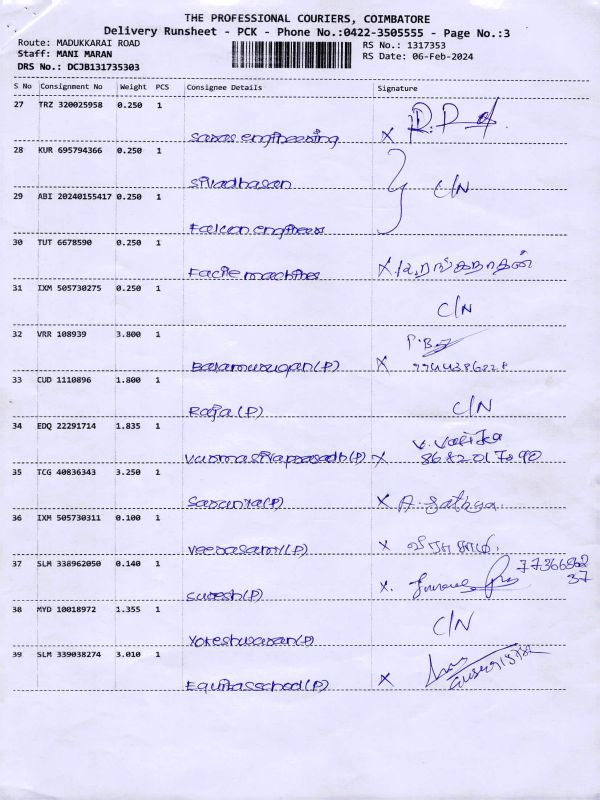 THE PROFESSIONAL COURIERS, COIMBATORE
Delivery Runsheet - PCK - Phone No.:0422-3505555 - Page No.:3
Route: MADUKKARAI ROAD RS No.: 1317353
Staff: MANI MARAN RS Date: 06-Feb-2024
DRS No.: DCJB131735303
S No Consignment No Weight PCS Consignee Details Signature
27 TRZ 320025958 0.250 1
saras engineering x
28 KUR 695794366 0.250 1
Sivadhasan C/N
29 ABI 20240155417 0.250 1
Falcon engineers
30 TUT 6678590 0.250 1
Facile machines x
31 IXM 505730275 0.250 1
C/N
32 VRR 108939 3.800 1
Balamurugan(P) x
33 CUD 1110896 1.800 1
Raja(P) C/N
34 EDQ 22291714 1.835 1
Varmasivaprasadh(P) x 8682017290
35 TCG 40836343 3.250 1
Saranya(P) x A. Sathya.
36 IXM 505730311 0.100 1
Veerasamy(P) x வீராசாமி.
37 SLM 338962050 0.140 1
Suresh(P) x.
38 MYD 10018972 1.355 1
Yokeshwaran(P) C/N
39 SLM 339038274 3.010 1
Equitasschool(P) x